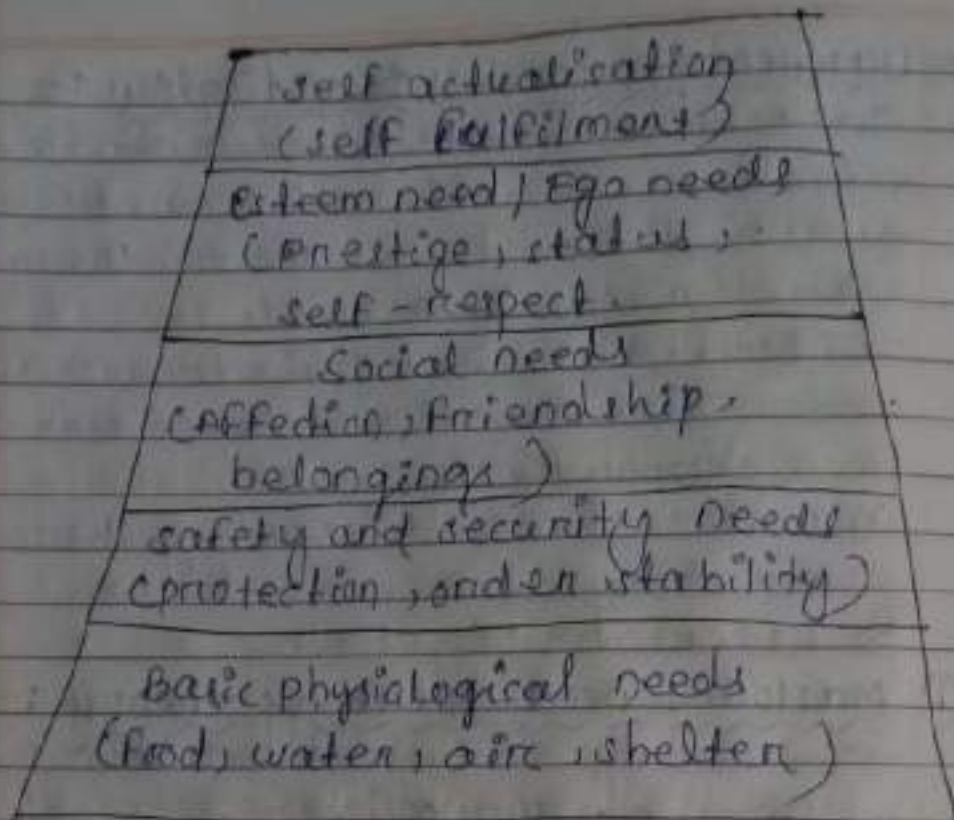 self actualization
(self fulfilment)
Esteem need / Ego needs
(prestige, status,
self-respect.
Social needs
(Affection, friendship.
belongings)
safety and security needs
(protection, order, stability)
Basic physiological needs
(food, water, air, shelter)